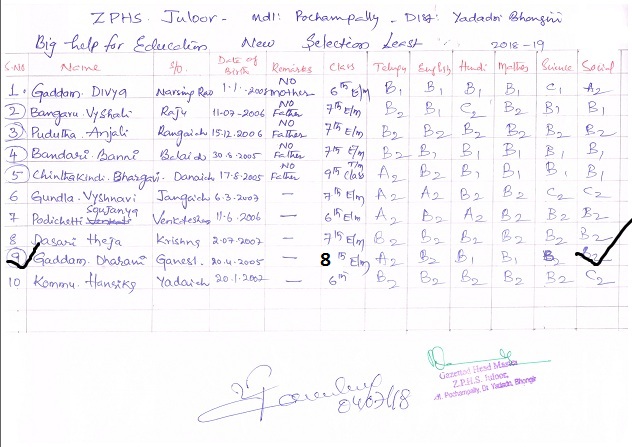 ZPHS. Juloor - Mdl: Pochampally. Dist: Yadadri Bhongiri
Big help for Education New Selection Least 2018-19
S.No Name S/o. Date of Birth Remarks Class Telugu English Hindi Maths Science Social
1. Gaddam. Divya Narsing Rao 1-1-2005 NO mother 6th E/m B1 B1 B1 B1 C1 A2
2 Bangaru. Vyshali Raju 11-07-2006 NO Father 7th E/m B2 B1 C2 B2 B1 B1
3 Pudutha. Anjali Rangaiah 15.12.2006 NO Father 7th E/m B2 B2 B2 B2 B2 B2
4 Bandari. Banni Balaiah 30.8.2005 NO Father 7th E/m B2 B1 B1 B1 B1 B1
5 Chinthakindi. Bhargavi Danaiah 17.8.2005 NO Father 9th T/m Class A2 B2 B1 B1 B1 B1
6 Gundla. Vyshnavi Jangaiah 6.3.2007 — 7th E/m A2 A2 B2 B2 C2 C2
7 Podichetti Soujanya Venkatesh 11.6.2006 — 6th E/m A2 B2 A2 B2 B2 B2
8 Dasari theja Krishna 2.07.2007 — 7th E/m B2 B2 B2 B2 B2 B2
9 Gaddam. Dharani Ganesh 20.4.2005 — 8th E/m A2 B2 B1 B1 B2 B2
10 Kommu. Hansika Yadaiah 20.1.2007 — 6th B2 B2 B2 B2 B2 C2
Gazetted Head Master
Z.P.H.S. Juloor,
M. Pochampally, Dt. Yadadri, Bhongir
04/07/18